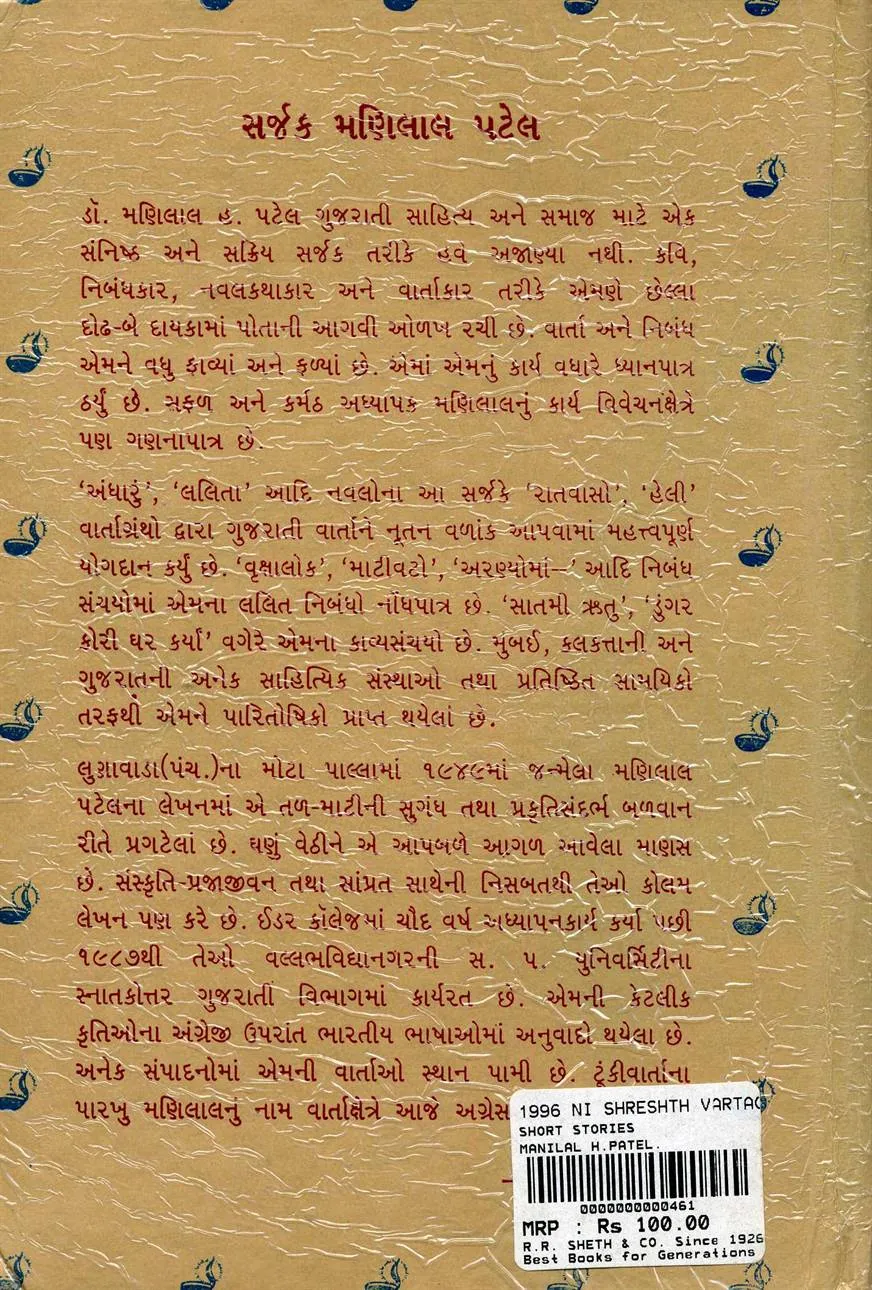 સર્જક મણિલાલ પટેલ
ડૉ. મણિલાલ હ. પટેલ ગુજરાતી સાહિત્ય અને સમાજ માટે એક
સંનિષ્ઠ અને સક્રિય સર્જક તરીકે હવે અજાણ્યા નથી. કવિ,
નિબંધકાર, નવલકથાકાર અને વાર્તાકાર તરીકે એમણે છેલ્લા
દોઢ-બે દાયકામાં પોતાની આગવી ઓળખ રચી છે. વાર્તા અને નિબંધ
એમને વધુ ફાવ્યાં અને ફળ્યાં છે. એમાં એમનું કાર્ય વધારે ધ્યાનપાત્ર
ઠર્યું છે. સફળ અને કર્મઠ અધ્યાપક મણિલાલનું કાર્ય વિવેચનક્ષેત્રે
પણ ગણનાપાત્ર છે.
‘અંધારું’, ‘લલિતા’ આદિ નવલોના આ સર્જકે ‘રાતવાસો’, ‘હેલી’
વાર્તાગ્રંથો દ્વારા ગુજરાતી વાર્તાને નૂતન વળાંક આપવામાં મહત્ત્વપૂર્ણ
યોગદાન કર્યું છે. ‘વૃક્ષાલોક’, ‘માટીવટો’, ‘અરણ્યોમાં—’ આદિ નિબંધ
સંચયોમાં એમના લલિત નિબંધો નોંધપાત્ર છે. ‘સાતમી ઋતુ’, ‘ડુંગર
કોરી ઘર કર્યાં’ વગેરે એમના કાવ્યસંચયો છે. મુંબઈ, કલકત્તાની અને
ગુજરાતની અનેક સાહિત્યિક સંસ્થાઓ તથા પ્રતિષ્ઠિત સામયિકો
તરફથી એમને પારિતોષિકો પ્રાપ્ત થયેલાં છે.
લુણાવાડા(પંચ.)ના મોટા પાલ્લામાં ૧૯૪૯માં જન્મેલા મણિલાલ
પટેલના લેખનમાં એ તળ-માટીની સુગંધ તથા પ્રકૃતિસંદર્ભ બળવાન
રીતે પ્રગટેલાં છે. ઘણું વેઠીને એ આપબળે આગળ આવેલા માણસ
છે. સંસ્કૃતિ-પ્રજાજીવન તથા સાંપ્રત સાથેની નિસબતથી તેઓ કોલમ
લેખન પણ કરે છે. ઈડર કૉલેજમાં ચૌદ વર્ષ અધ્યાપનકાર્ય કર્યા પછી
૧૯૮૭થી તેઓ વલ્લભવિદ્યાનગરની સ. પ. યુનિવર્સિટીના
સ્નાતકોત્તર ગુજરાતી વિભાગમાં કાર્યરત છે. એમની કેટલીક
કૃતિઓના અંગ્રેજી ઉપરાંત ભારતીય ભાષાઓમાં અનુવાદો થયેલા છે.
અનેક સંપાદનોમાં એમની વાર્તાઓ સ્થાન પામી છે. ટૂંકીવાર્તાના
પારખુ મણિલાલનું નામ વાર્તાક્ષેત્રે આજે અગ્રેસ
1996 NI SHRESHTH VARTAO
SHORT STORIES
MANILAL H.PATEL.
0000000000461
MRP : Rs 100.00
R.R. SHETH & CO. Since 1926
Best Books for Generations